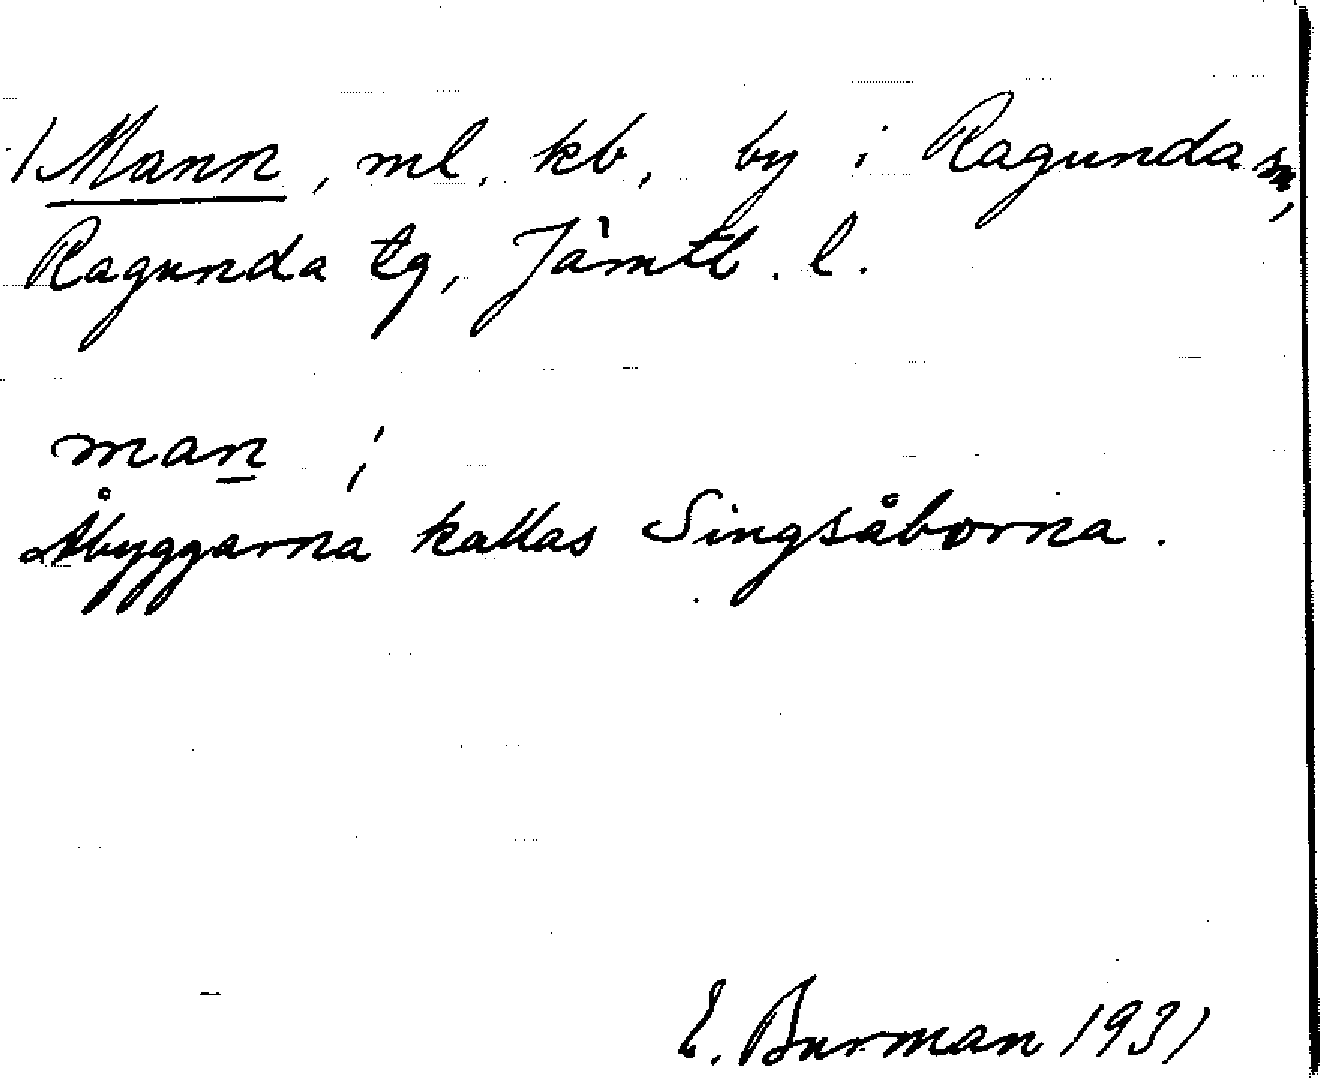 /Mann, ml. kb, by i Ragunda sn,
Ragunda tg, Jämtl. l.
man ;
Åbyggarna kallas Singsåborna.
E. Burman 1931